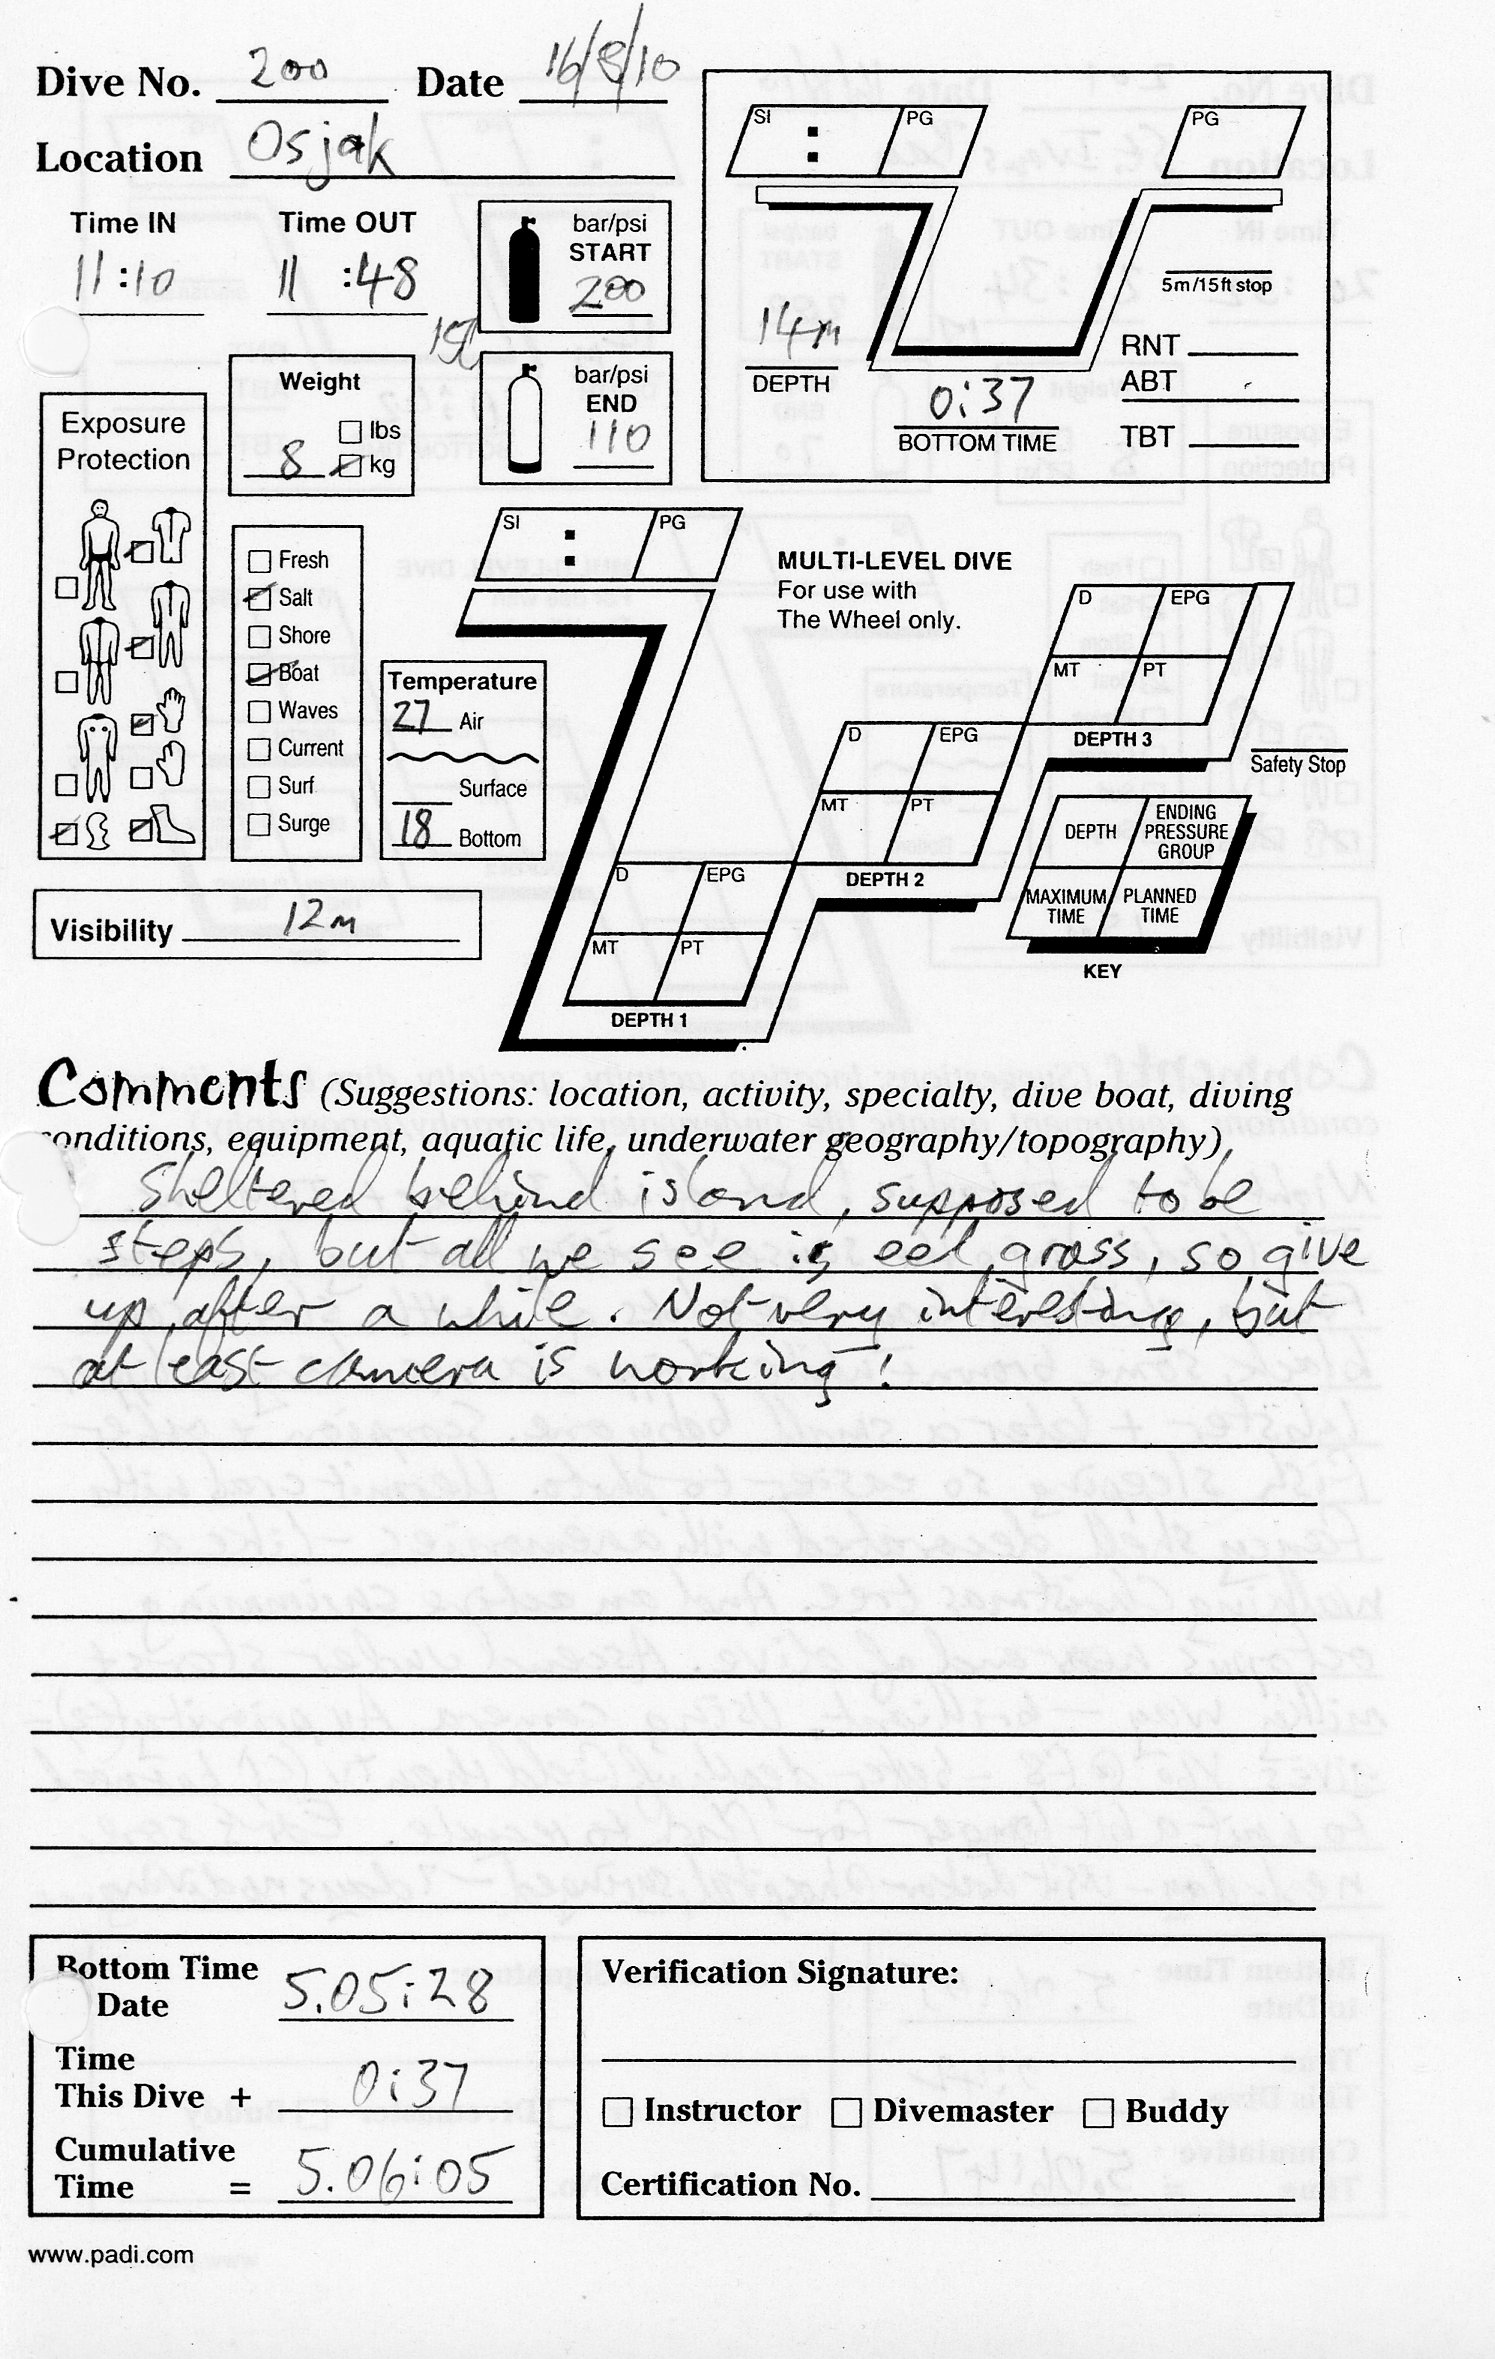 Dive No. 200 Date 16/8/10
Location Osjak
SI : PG PG
Time IN Time OUT
11:10 11:48
bar/psi
START
200
5m/15ft stop
14m
DEPTH
0:37
BOTTOM TIME
RNT
ABT
TBT
Weight
lbs
8 kg
bar/psi
END
110
Exposure
Protection
Fresh
Salt
Shore
Boat
Waves
Current
Surf
Surge
Temperature
27 Air
Surface
18 Bottom
SI : PG
MULTI-LEVEL DIVE
For use with
The Wheel only.
D EPG
MT PT
DEPTH 3
D EPG
MT PT
DEPTH 2
D EPG
MT PT
DEPTH 1
Safety Stop
DEPTH ENDING PRESSURE GROUP
MAXIMUM TIME PLANNED TIME
KEY
Visibility 12m
Comments (Suggestions: location, activity, specialty, dive boat, diving
onditions, equipment, aquatic life, underwater geography/topography)
Sheltered behind island, supposed to be
steps, but all we see is eel grass, so give
up after a while. Not very interesting, but
at least camera is working!
Bottom Time
Date 5.05:28
Time
This Dive + 0:37
Cumulative
Time = 5.06:05
Verification Signature:
Instructor Divemaster Buddy
Certification No.
www.padi.com